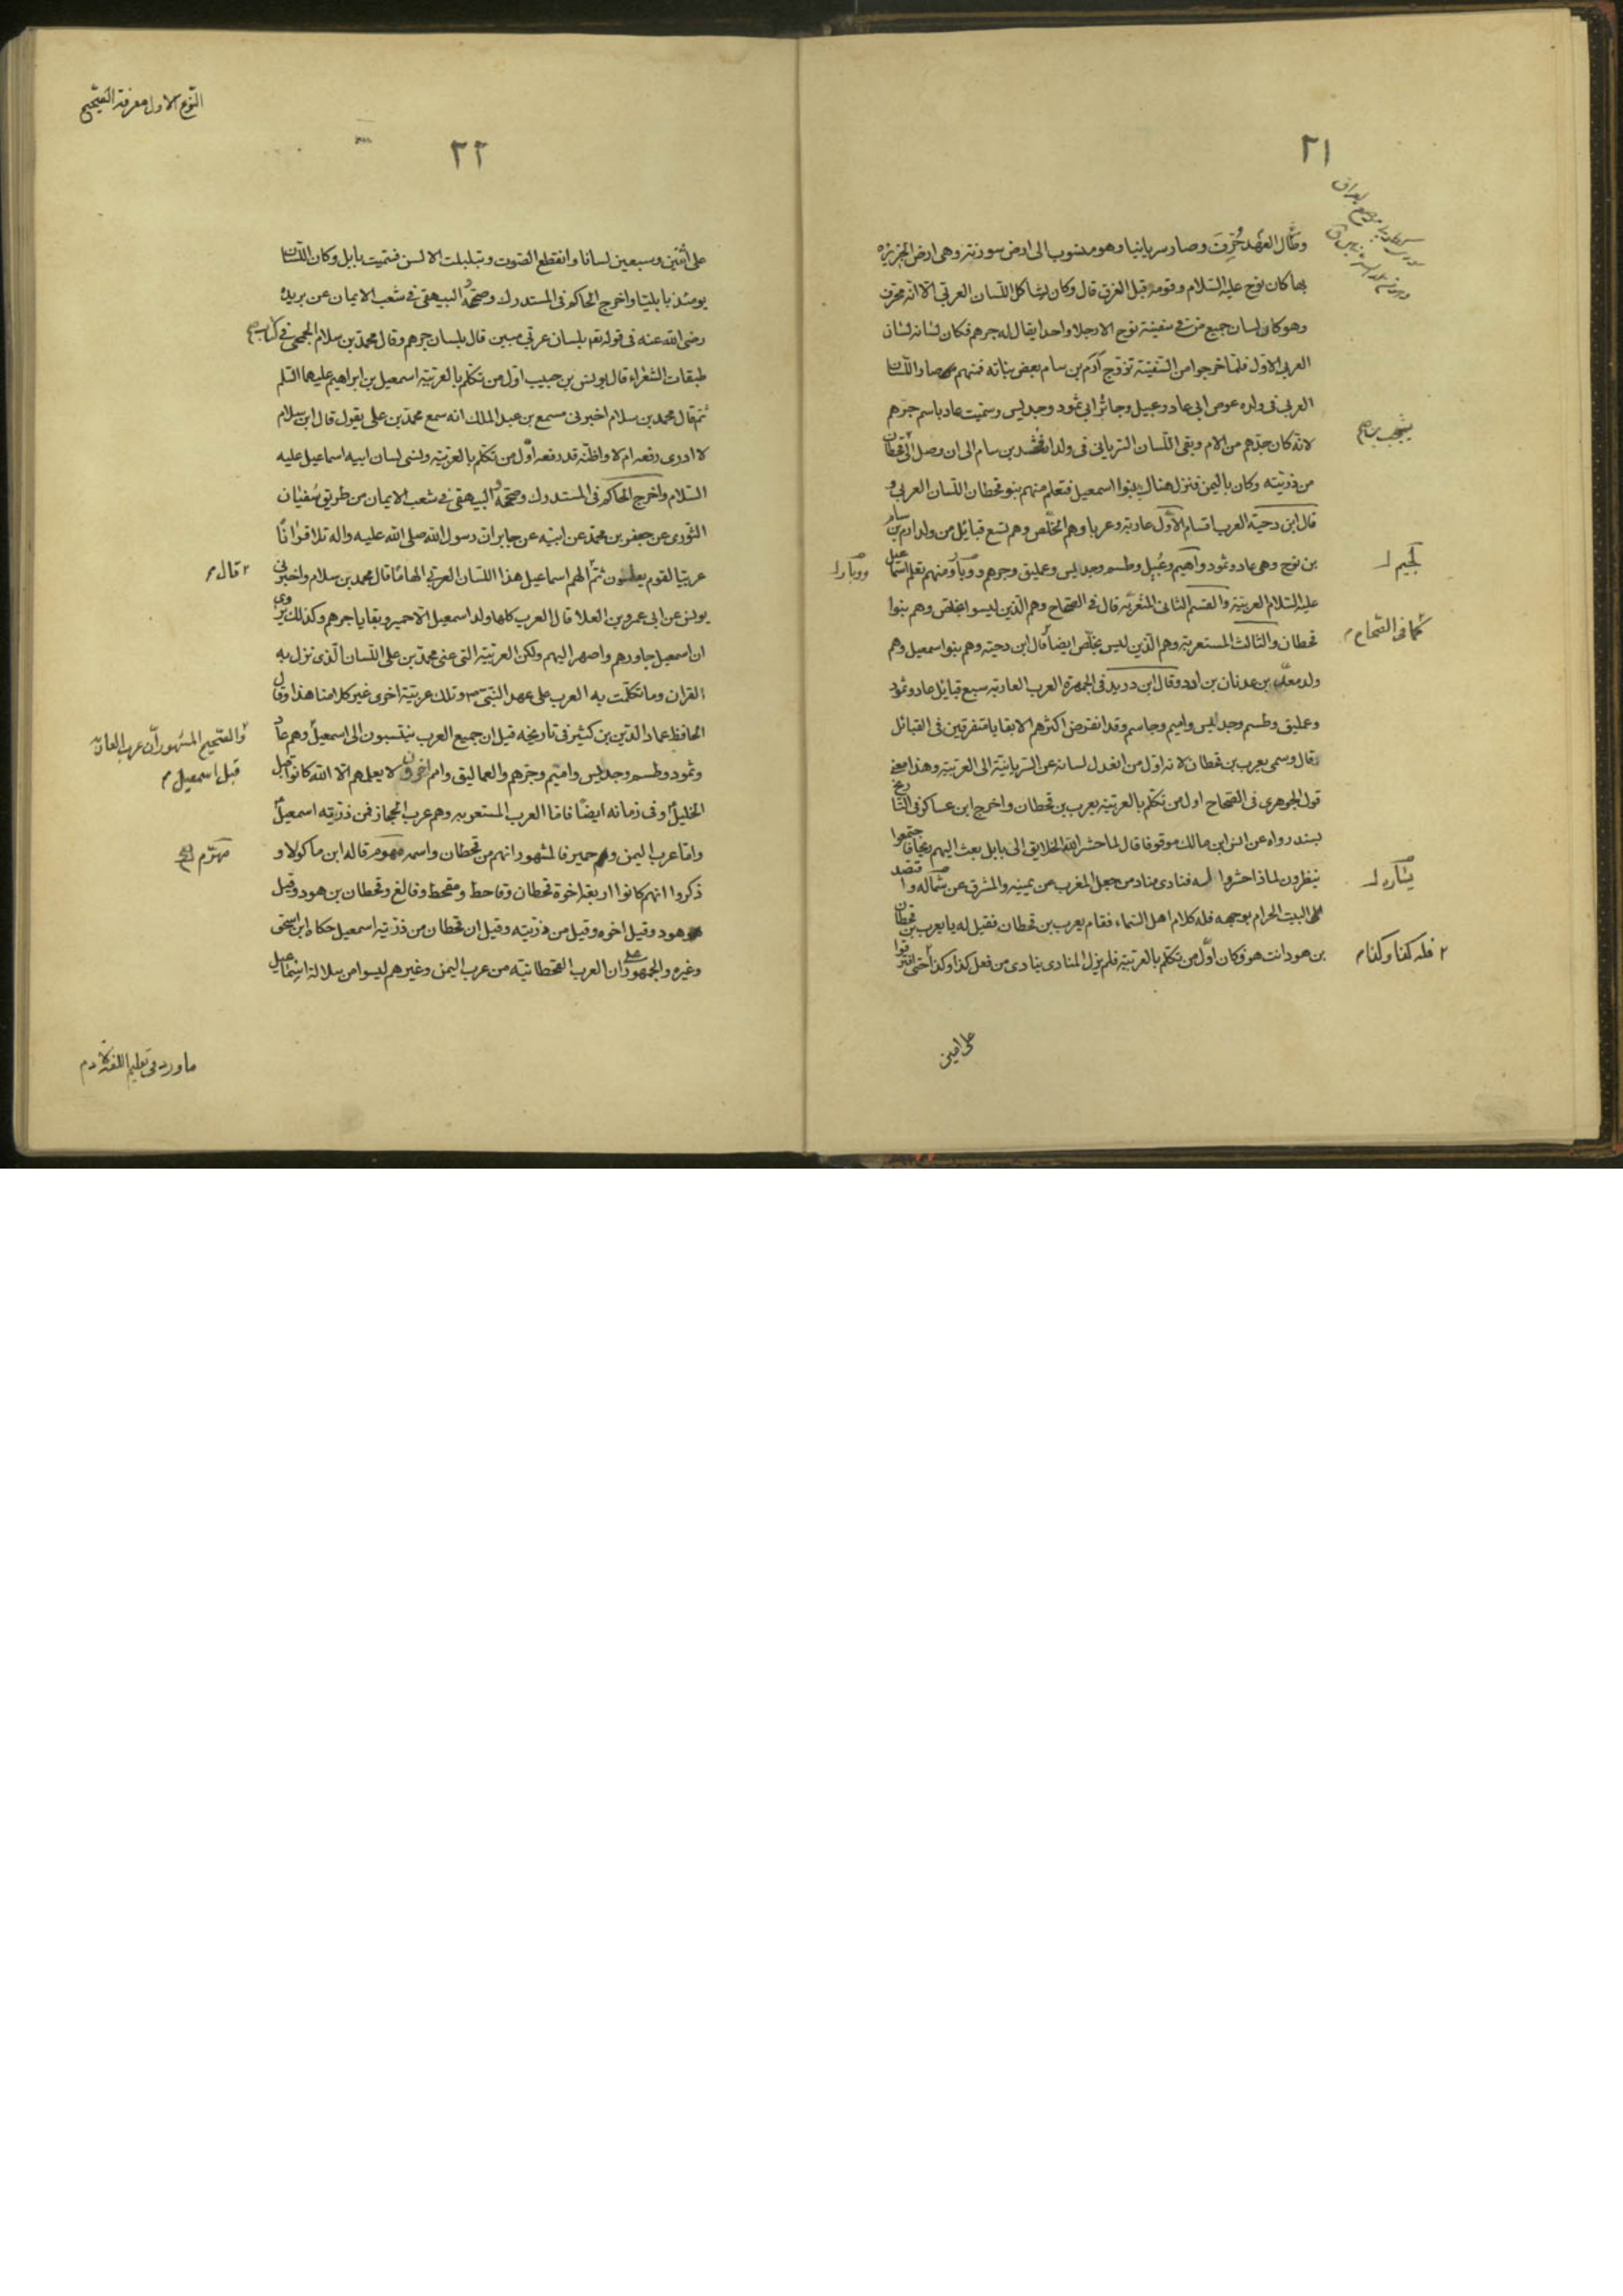 ٢١
وطال العهد حُرِّفَ وصار سريانيا وهو منسوب الى ارض سورنة وهى ارض الجزيرة
بها كان نوح عليه السلام وقومه قبل الغرق قال وكان يشاكل اللسان العربى الا انه محرف
وهو كان لسان جميع من فى سفينة نوح الا رجلا واحدا يقال له جرهم فكان لسانه لسان
العربى الاول فلما خرجوا من السفينة تزوج آرم بن سام بعض بناته فمنهم صار اللسان
العربى فى ولده عوص ابى عاد وعبيل وجاثر ابى ثمود وجديس وسميت عاد باسم جرهم
لانه كان جدهم من الام وبقى اللسان السريانى فى ولد ارفخشد بن سام الى ان وصل الى قحطان
من ذريته وكان باليمن فنزل هناك بنوا اسمعيل فتعلم منهم بنو قحطان اللسان العربى و
قال ابن دحية العرب اقسام الاول عاربة وعربا وهم الخلّص وهم تسع قبائل من ولد ارم بن سام
بن نوح وهى عاد وثمود واميم وعُبيل وطسم وجديس وعمليق وجرهم ووبار ومنهم تعلم اسماعيل
عليه السلام العربية والقسم الثانى المتعربة قال فى الصحاح وهم الذين ليسوا بخلص وهم بنوا
قحطان والثالث المستعربة وهم الذين ليس بخلّص ايضا قال ابن دحية وهم بنو اسمعيل وهم
ولد معد بن عدنان بن ادد وقال ابن دريد فى الجمهرة العرب العاربة سبع قبائل عاد وثمود
وعمليق وطسم وجديس واميم وجاسم وقد انقرض اكثرهم الا بقايا متفرقين فى القبائل
قال وسمى يعرب بن قحطان لانه اول من انعدل لسانه عن السريانية الى العربية وهذا معنى
قول الجوهرى فى الصحاح اول من تكلم بالعربية يعرب بن قحطان واخرج ابن عساكر فى التاريخ
بسند رواه عن انس ابن مالك موقوفا قال لما حشر الله الخلايق الى بابل بعث اليهم ريحا فاجتمعوا
ينظرون لماذا حشروا له فنادى مناد من جعل المغرب عن يمينه والمشرق عن شماله واقتصد
الى البيت الحرام بوجهه فله كلام اهل السماء فقام يعرب بن قحطان فقيل له يا يعرب بن قحطان
بن هود انت هو فكان اول من تكلم بالعربية فلم يزل المنادى ينادى من فعل كذا وكذا حتى افترقوا
كما فى الصحاح م
٢ فله كذا وكذا م
ووبار
على امين
النوع الاول معرفة الصحيح
٢٢
على اثنين وسبعين لسانا وانقطع الصوت وتبلبلت الالسن فسميت بابل وكان اللسان
يومئذ بابليا واخرج الحاكم فى المستدرك وصححه والبيهقى فى شعب الايمان عن بريدة
رضى الله عنه فى قوله تعه بلسان عربى مبين قال بلسان جرهم وقال محمد بن سلام الجمحى فى كتاب
طبقات الشعراء قال يونس بن حبيب اول من تكلم بالعربية اسمعيل بن ابراهيم عليهما السلم
ثم قال محمد بن سلام اخبرنى مسمع بن عبد الملك انه سمع محمد بن على يقول قال ابن سلام
لا ادرى رفعه ام لا واظنه قد رفعه اول من تكلم بالعربية ونسى لسان ابيه اسماعيل عليه
السلام واخرج الحاكم فى المستدرك وصححه والبيهقى فى شعب الايمان من طريق سفيان
الثورى عن جعفر بن محمد عن ابيه عن جابر ان رسول الله صلى الله عليه واله تلا قرانا
عربيا لقوم يعلمون ثم الهم اسماعيل هذا اللسان العربى الهاما قال محمد بن سلام واخبرنى
يونس عن ابى عمرو بن العلا قال العرب كلها ولد اسمعيل الا حمير وبقايا جرهم وكذلك يروى
ان اسمعيل جاورهم واصهر اليهم ولكن العربية التى عنى محمد بن على اللسان الذى نزل به
القران وما تكلمت به العرب على عهد النبى ص وتلك عربية اخرى غير كلامنا هذا وقال
الحافظ عماد الدين بن كثير فى تاريخه قيل ان جميع العرب ينتسبون الى اسمعيل وهم عاد
وثمود وطسم وجديس واميم وجرهم والعماليق وامم اخرون لا يعلمهم الا الله كانوا قبل
الخليل وفى زمانه ايضا فاما العرب المستعربه وهم عرب الحجاز فمن ذريته اسمعيل
واما عرب اليمن وهم حمير فالمشهور انهم من قحطان واسمه مهزم قاله ابن ماكولا و
ذكروا انهم كانوا اربعة اخوة قحطان وقاحط ومقحط وفالغ وقحطان بن هود وقيل
هو هود وقيل اخوه وقيل من ذريته وقيل ان قحطان من ذرية اسمعيل حكاه ابن اسحق
وغيره والجمهور على ان العرب القحطانية من عرب اليمن وغيرهم ليسوا من سلالة اسماعيل
٢ قال م
والصحيح المشهور ان عرب العاربه
قبل اسمعيل م
مهزم
ما ورد فى تعليم اللغة لادم